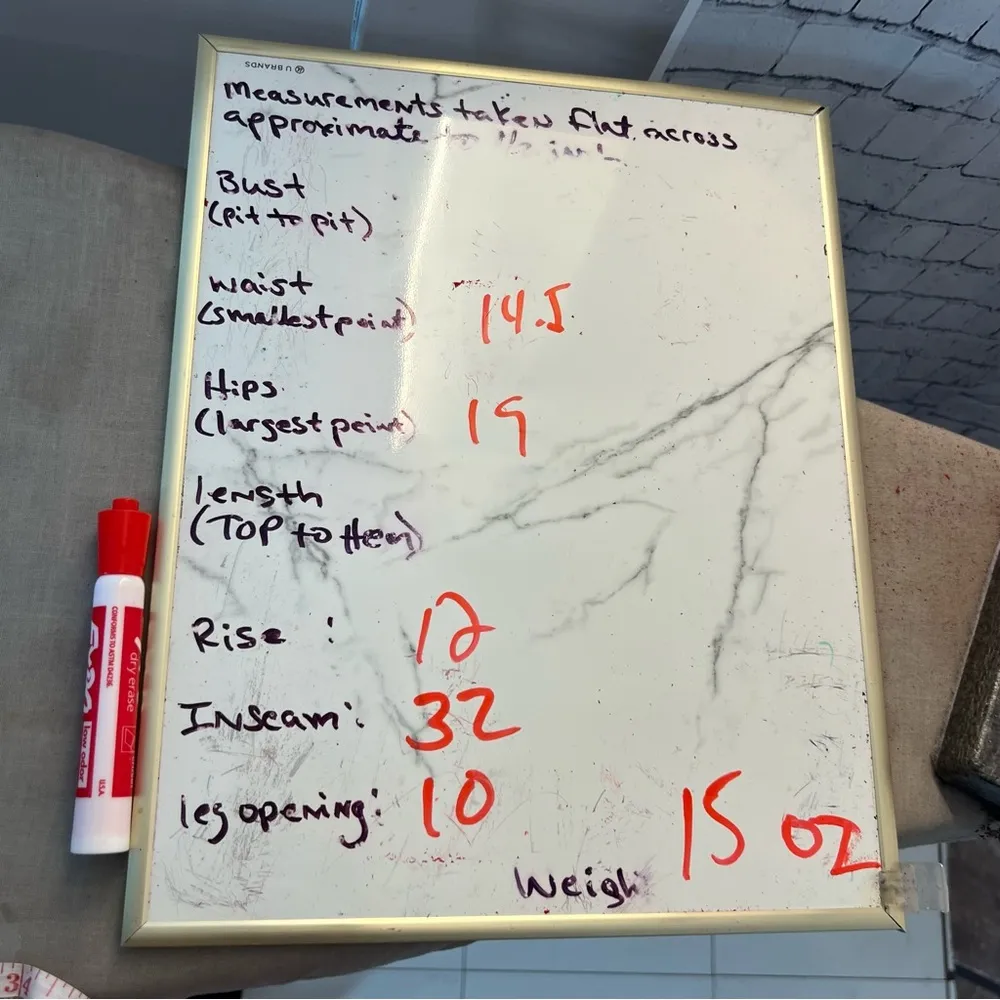 U BRANDS
Measurements taken flat across
approximate
Bust
(pit to pit)
Waist
(smallest point) 14.5
Hips
(largest point) 19
length
(TOP to Hem)
Rise : 12
Inseam: 32
leg opening: 10
15 oz
Weigh
CONFORMS TO ASTM D4236
dry erase
low odor
USA
3